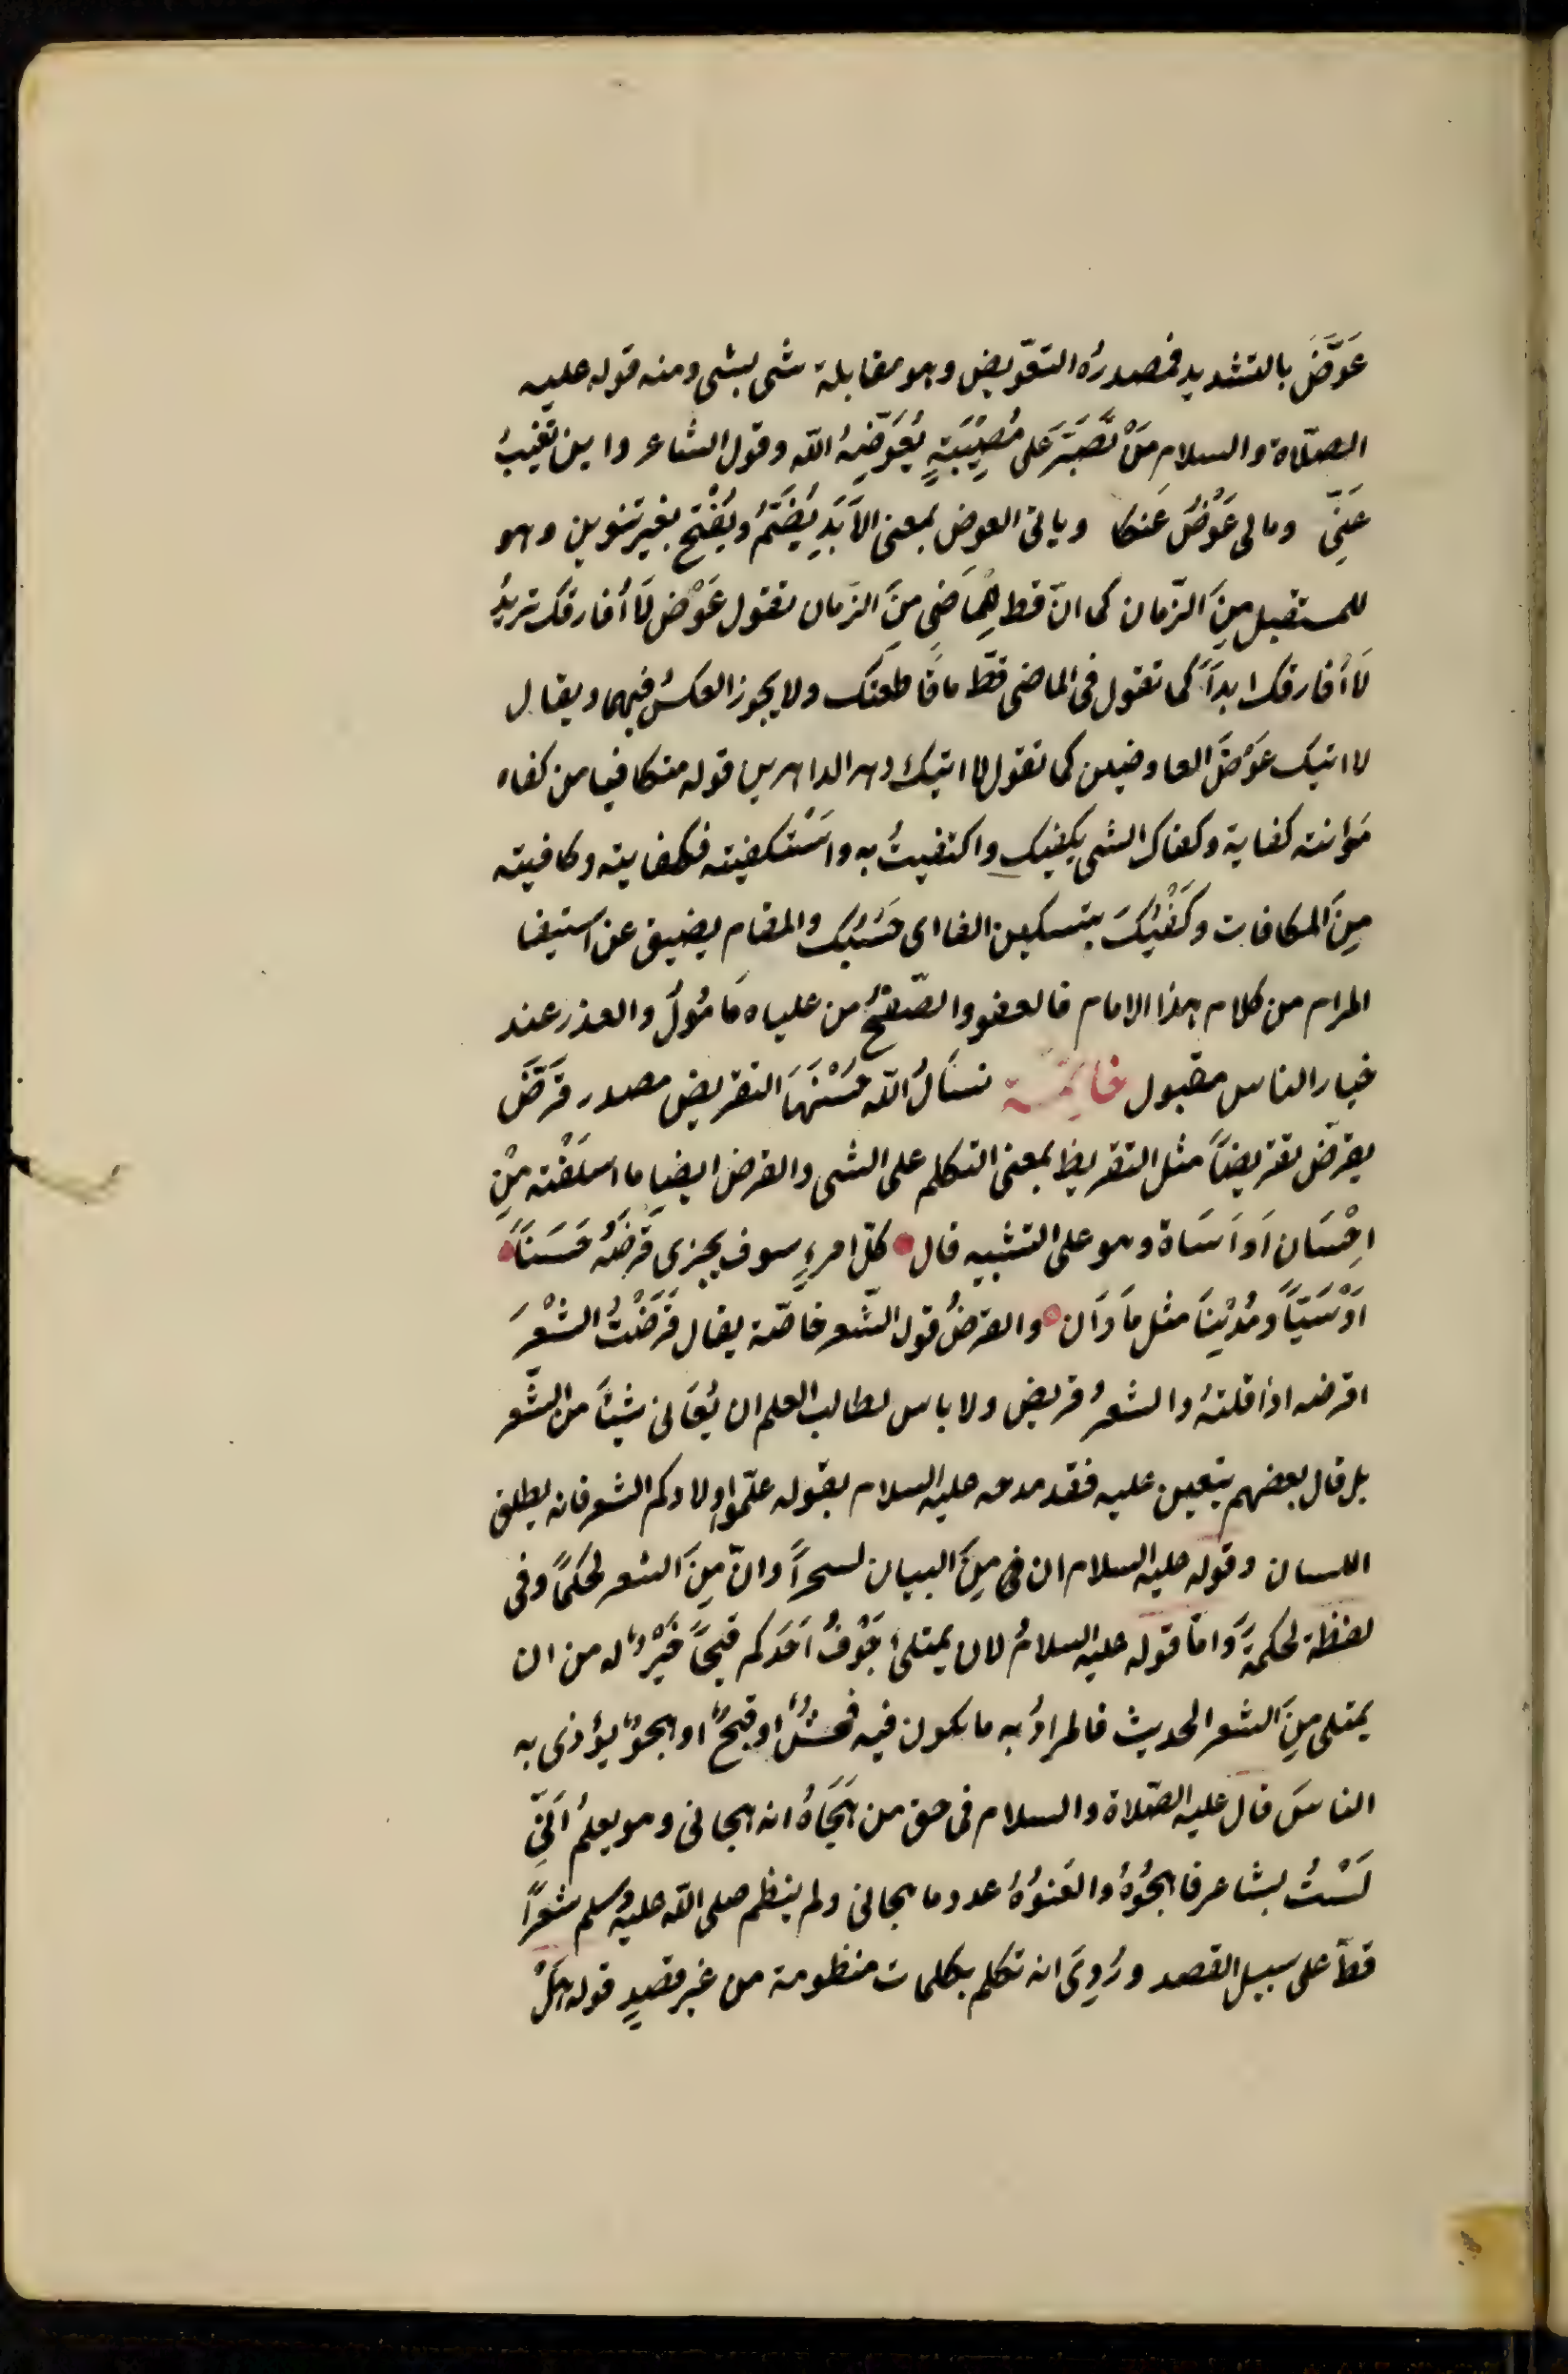 عَوَّضَ بالتشديد فمصدرُه التعّويض وهو مقابلة شى بشى ومنه قوله عليه
الصلّاة والسلام مَنْ تَصَبَّرَ عَلى مُصِيْبَةٍ يُعَوِّضِهُ اللّه وقول الشاعر واين تَغيبُ
عَنِّى ومالى عَوْضُ عَنكا وياتى العوض بمعنى الاَبَدِ يُضَمُّ ويُفْتَح بغير تنوين وهو
للمستقبل مِنَ الزّمان كما انّ قط لِلْمَاضِى مِنَ الزّمان تقول عَوْض لَا أُفارقك تريدُ
لَا أُفارقك ابداً كما تقول فى الماضى قطّ ماقاطعتك ولا يجوز العكسُ فيهما ويقال
لا اتيك عَوْضَ العاوضين كما تقول لا اتيك دهر الداهرين قوله متكافيا من كفاه
مَؤانته كفاية وكفاك الشى يكفيك واكتفيتُ به واسَتْكفيته فكفانيه وكافيته
مِنَ المكافات وكَفْيُكَ بتسكين الفا اى حَسْبُك والمقام يضيق عن استيفا
المرام من كلام هذا الامام فالعفو والصّفحُ من علياه مَامُولٌ والعذر عند
خيار الناس مقبول خاتمَة نسأَلُ اللّه حُسْنَهَا التقريض مصدر قرَّضَ
يقرّض تقريضاً مثل التقريظ بمعنى التكلم على الشى والقرض ايضا ما اسلَفْته مِنْ
اِحْسَان اَو اَسَاة وهو على التشبيه قال كلّ امرءٍ سوف يجزى قَرضَهُ حَسَناً
اَوْ سَيّاً ومُدْيِناً مثل مَا دَان والقرضُ قول الشّعر خاصّة يقال قَرَضْتُ الشعْرَ
اقرضه اذا قلتهُ والشعرُ قريض ولا باس لطالب العلم ان يُعَانى شيئاً من الشّعر
بل قال بعضهم يتعين عليه فقد مدحه عليه السلام بقوله علّموا اولادكم الشعر فانه يطلق
اللسان وقوله عليه السلام ان فى مِنَ البيان لسحراً وانّ مِنَ الشعر لحكماً وفى
لفظة لحكمةً وامّا قوله عليه السلامُ لان يمتلئ جَوْفُ اَحَدكم قيحاً خَيْرٌ له من ان
يمتلى مِنَ الشعر الحديث فالمرادُ به ما يكون فيه فحشٌ او قبحٌ او هجوٌ يؤذى به
الناسَ قال عليه الصّلاة والسلام فى حق من هَجَاهُ انه هجانى وهو يعلمُ اَنِّى
لَسْتُ بشاعر فاهجُوهُ والعَنُوْهُ عدد ما هجانى ولم ينظم صلى اللّه عليه وسلم شعراً
قطّ على سبيل القصد ورُوِىَ انه تكلم بكلمات منظومة من غير قصدٍ قوله هَلْ